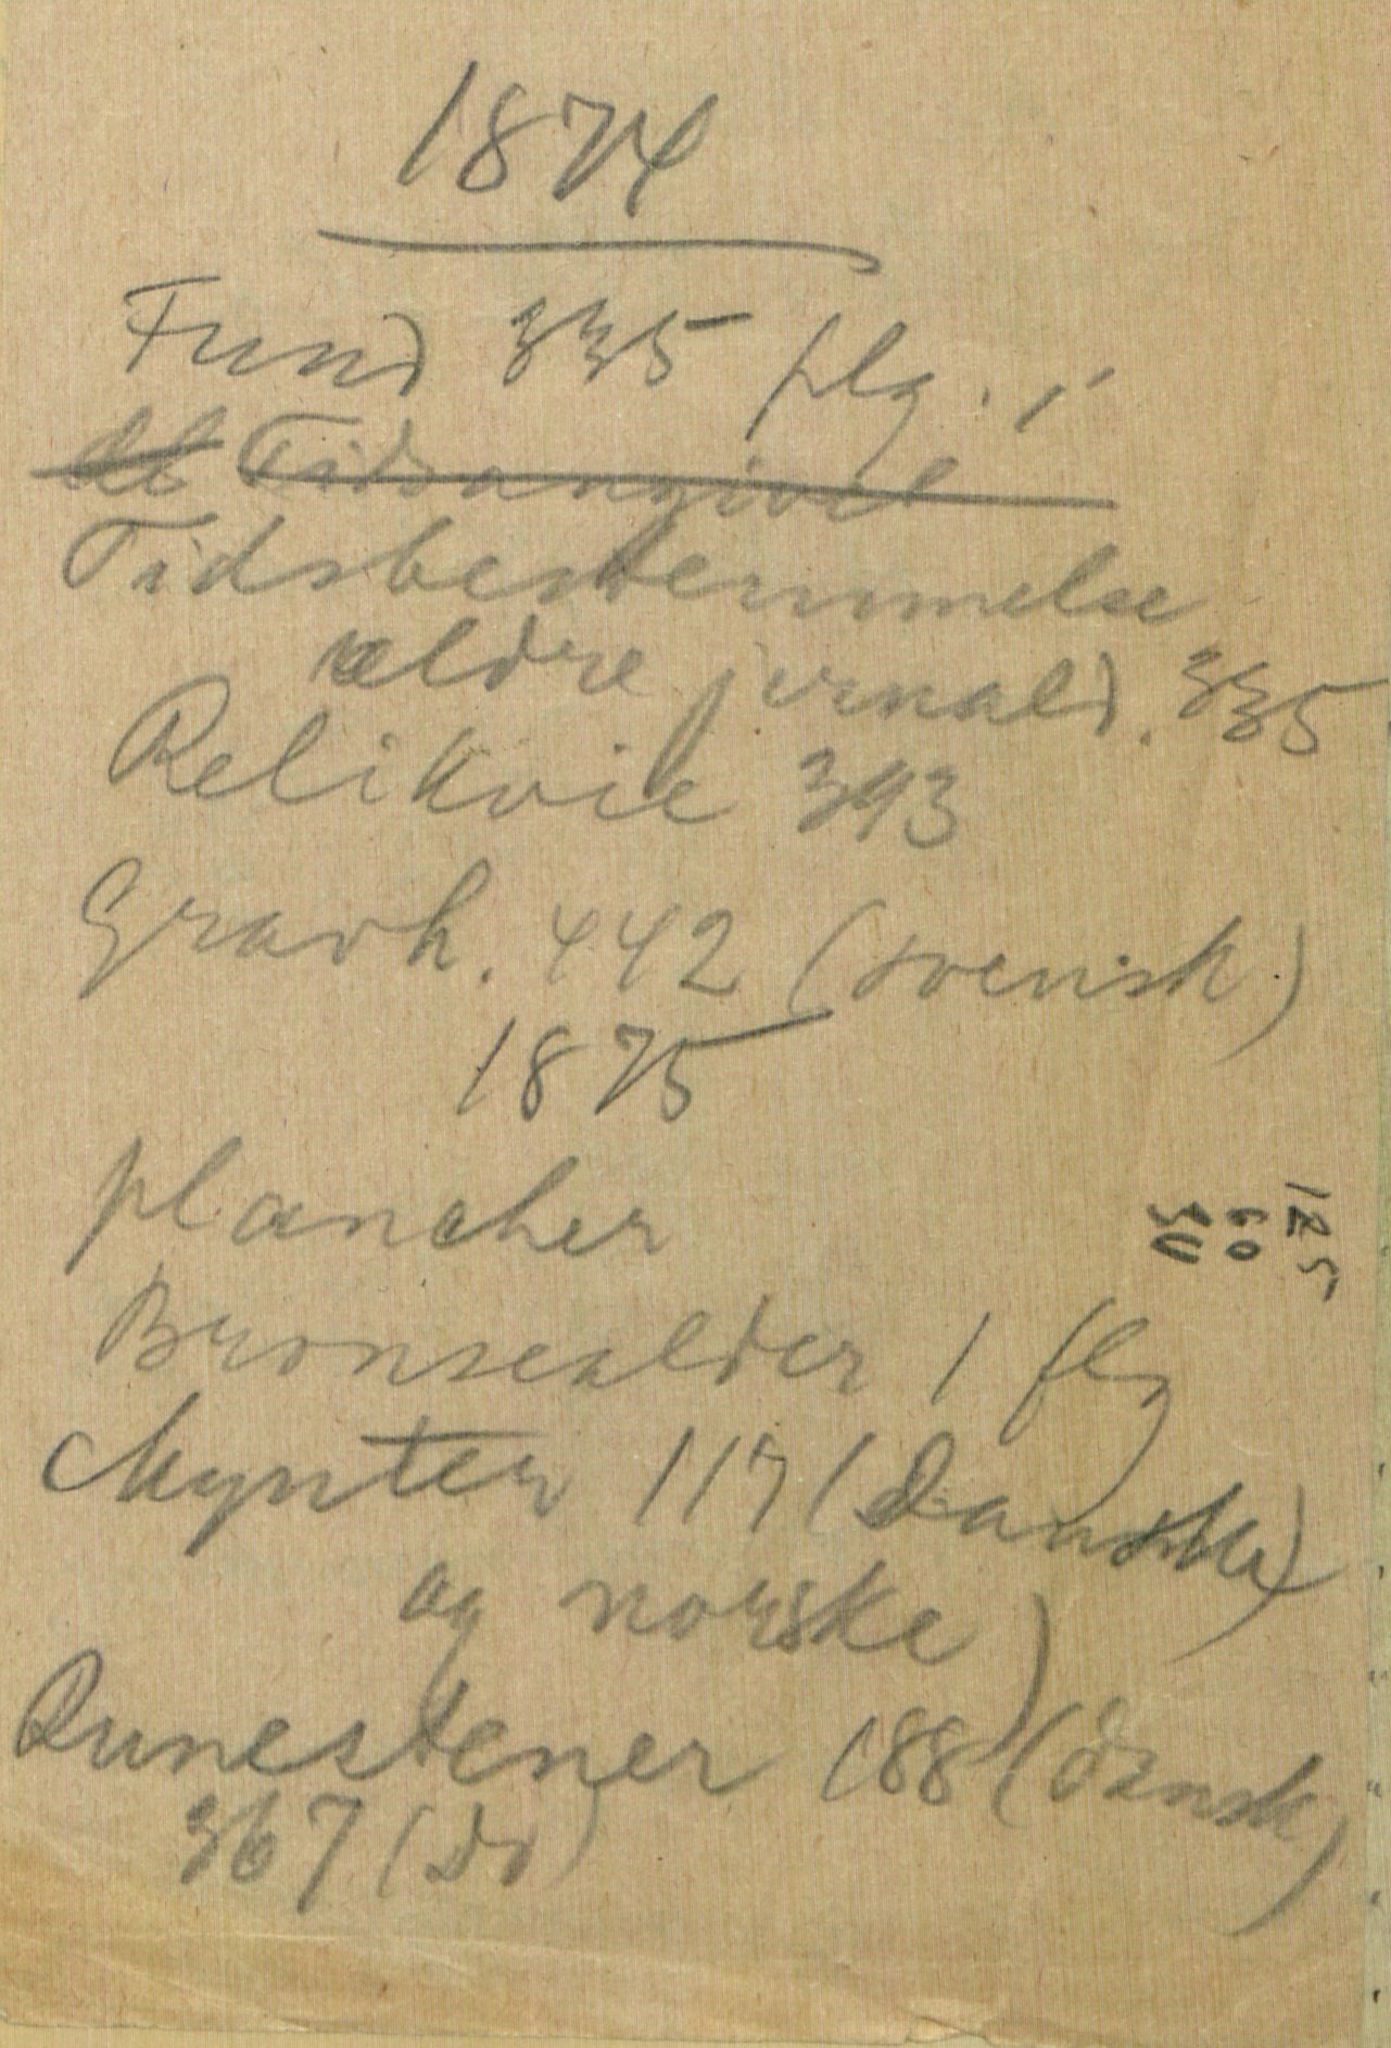 1874
Fund 335 flg. i
Tidsangivel
Tidsbestemmelse
ældre jernald. 335
Relikvie 393
Gravh. 442 (svensk)
1875
plancher
Bronsealder 1 flg
Mynter 117 (danske)
og norske)
Runestener 188 (dansk)
367 (do)
125
60